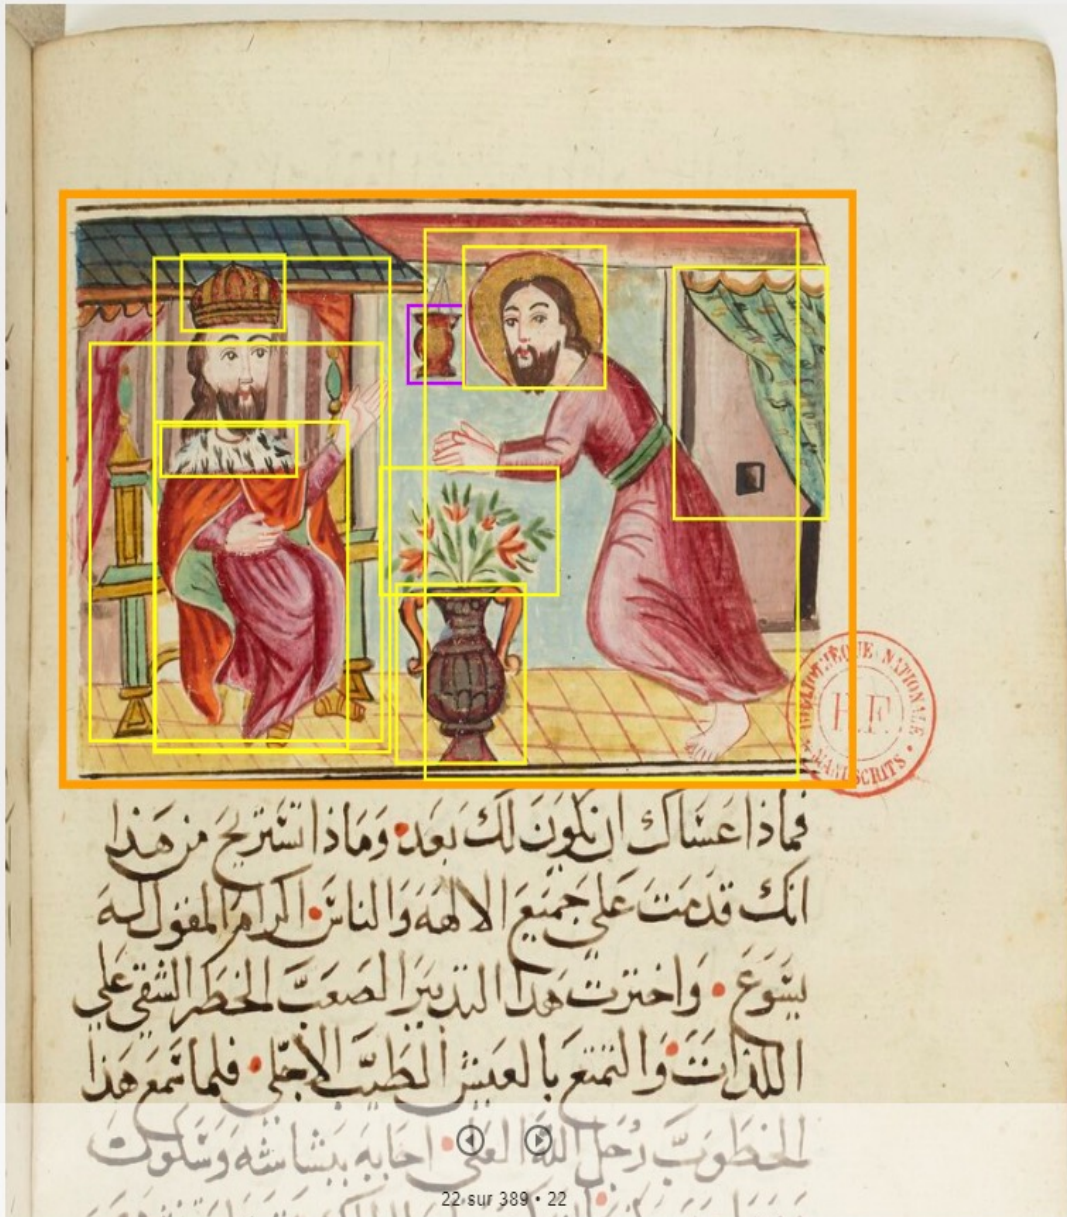 BIBLIOTHÈQUE NATIONALE
MANUSCRITS
فماذا عساك ان تكون لك بعد • وماذا تستريح من هذا
انك قدمت على جميع الالهه والناس • اكرامر المقول له
يسوع • واخترت هذا التدبير الصعب الخطر الشقي على
اللذات والتمتع بالعيش الطيب الاجلي • فلما سمع هذا
الخطوب رجل الله العلي • اجابه ببشاشه وسلوك
22 sur 389 • 22